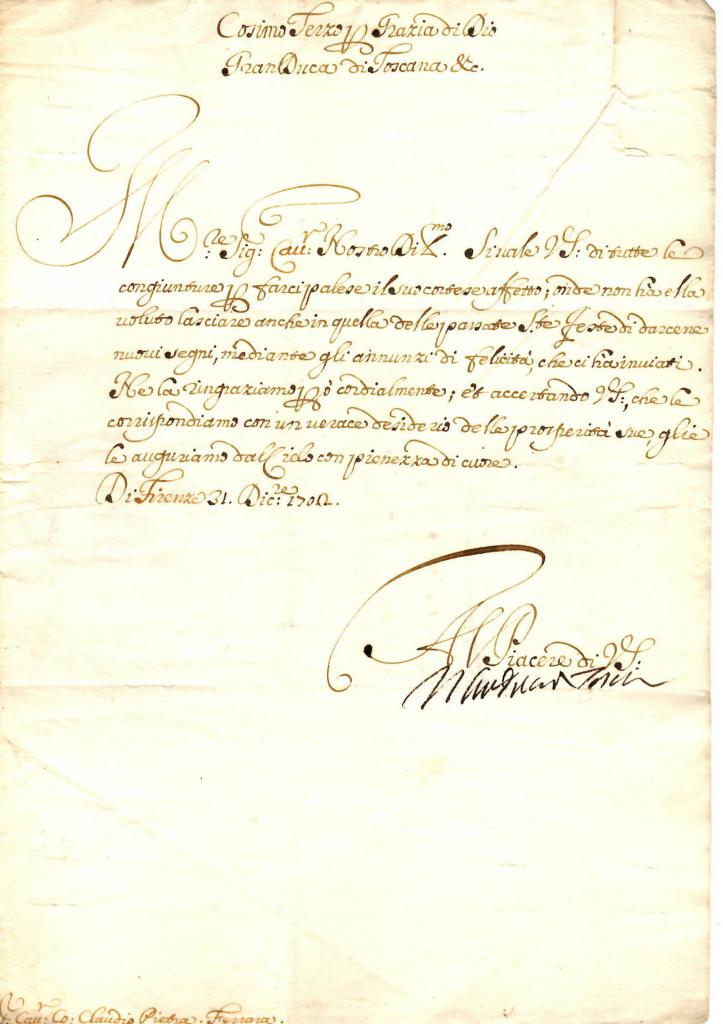 Cosimo Terzo p Grazia di Dio
Gran Duca di Toscana &c.
M:re Sig: Cau:r Nostro Di:mo. Si uale VS: di tutte le
congiunture p farci palese il suo cortese affetto; onde non hà ella
voluto lasciare anche in quella delle passate S:te Feste di darcene
nuoui segni, mediante gli annunzi di felicità, che ci hà inuiati.
Ne la ringraziamo però cordialmente; et accertando VS:, che le
corrispondiamo con un verace desiderio delle prosperità sue, glie
le auguriamo dal Cielo con pienezza di cuore.
Di Firenze 31. Dic:re 1702.
Al Piacere di VS:
S: Cau:r Co: Claudio Pietra. Ferrara.